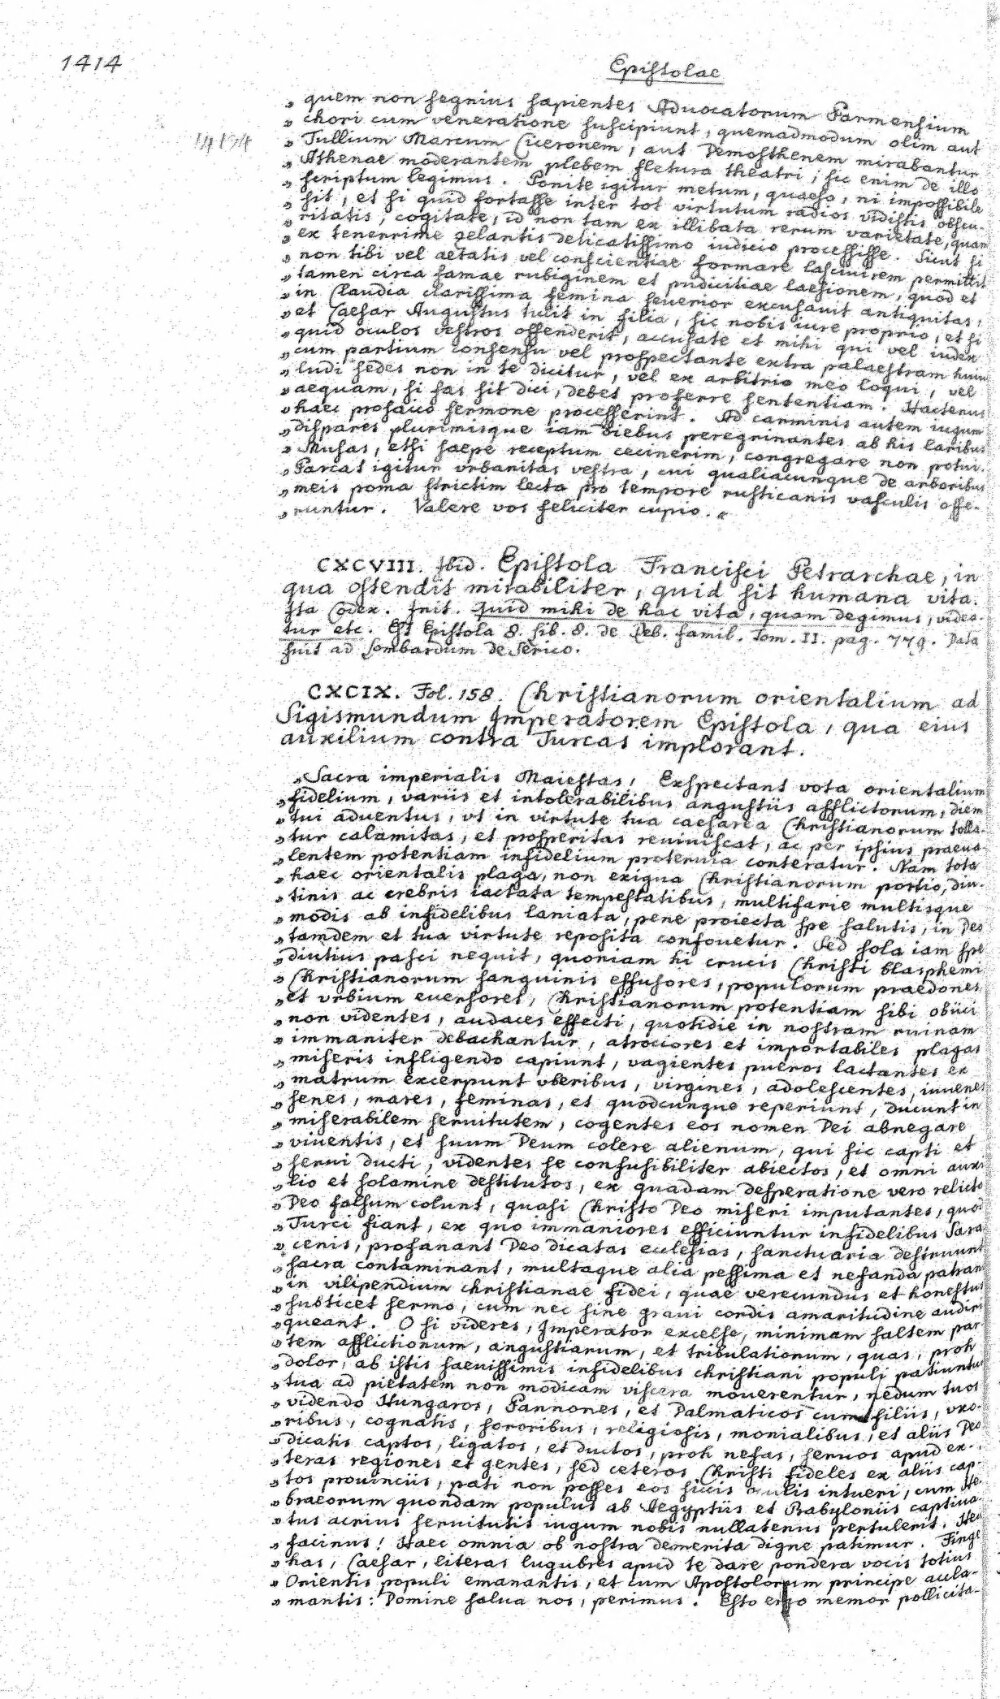 1414
Epistolae
1414
„ quem non segnius sapientes Aduocatorum Parmensium
„ chori cum veneratione suscipiunt, quemadmodum olim aut
„ Tullium Marcum Ciceronem, aut Demosthenem mirabantur
„ Athenae moderantem plebem fletura theatri; sic enim de illo
„ scriptum legimus. Ponite igitur metum, quaeso, ni impossibile
„ sit, et si quid fortasse inter tot virtutum radios vidistis obscu-
„ ritatis, cogitate, id non tam ex illibata rerum varietate, quam
„ ex tenerrime zelantis delicatissimo iudicio processisse. Sicut si
„ non tibi vel aetatis vel conscientiae formare lasciuirem permittit
„ tamen circa famae rubiginem et pudicitiae laesionem, quod et
„ in Claudia clarissima femina seuerior excusauit antiquitas,
„ et Caesar Augustus tulit in filia, sic nobis iure proprio, et si
„ quid oculos vestros offenderit, accusate et mihi qui vel iudex
„ cum partium consensu vel prospectante extra palaestram huius
„ ludi sedes non in te dicitur, vel ex arbitrio meo loqui, vel
„ aequam, si fas sit dici, debes proferre sententiam. Hactenus
„ haec prosaico sermone processerint. Ad carminis autem iugum
„ dispares plurimisque iam diebus peregrinantes ab his laribus
„ Musas, etsi saepe receptum cecinerim, congregare non potui.
„ Parcat igitur vrbanitas vestra, cui qualiacunque de arboribus
„ meis poma strictim lecta pro tempore rusticanis vasculis offe-
„ runtur. Valere vos feliciter cupio. „
CXCVIII. Ibid. Epistola Francisci Petrarchae, in
qua ostendit mirabiliter, quid sit humana vita.
Ita Codex. Init. Quid mihi de hac vita, quam degimus, videa-
tur etc. Est Epistola 8. Lib. 8. de Reb. famil. Tom. II. pag. 779. Data
fuit ad Lombardum de Serico.
CXCIX. Fol. 158. Christianorum orientalium ad
Sigismundum Imperatorem Epistola, qua eius
auxilium contra Turcas implorant.
„ Sacra imperialis Maiestas, Exspectant vota orientalium
„ fidelium, variis et intolerabilibus angustiis afflictorum, diem
„ tui aduentus, vt in virtute tua caesarea Christianorum tolla-
„ tur calamitas, et prosperitas reuiuiscat, ac per ipsius praeua-
„ lentem potentiam infidelium proteruia conteratur. Nam tota
„ haec orientalis plaga, non exigua Christianorum portio, diu-
„ tinis ac crebris iactata tempestatibus, multifarie multisque
„ modis ab infidelibus laniata, pene proiecta spe salutis, in Deo
„ tamdem et tua virtute reposita confouetur. Sed sola iam spe
„ diutius pasci nequit, quoniam hi crucis Christi blasphemi
„ Christianorum sanguinis effusores, populorum praedones
„ et vrbium euersores, Christianorum potentiam sibi obiici
„ non videntes, audaces effecti, quotidie in nostram ruinam
„ immaniter debachantur, atrociores et importabiles plagas
„ miseris infligendo capiunt, vagientes pueros lactantes ex
„ matrum excerpunt vberibus, virgines, adolescentes, iuuenes
„ senes, mares, feminas, et quodcunque reperiunt, ducunt in
„ miserabilem seruitutem, cogentes eos nomen Dei abnegare
„ viuentis, et suum Deum colere alienum, qui sic capti et
„ serui ducti, videntes se confusibiliter abiectos, et omni auxi
„ lio et solamine destitutos, ex quadam desperatione vero relicto
„ Deo falsum colunt, quasi Christo Deo miseri imputantes, quod
„ Turci fiant, ex quo immaniores efficiuntur infidelibus Sara
„ cenis, profanant Deo dicatas ecclesias, sanctuaria destruunt
„ sacra contaminant, multaque alia pessima et nefanda patrant
„ in vilipendium christianae fidei, quae verecundus et honestus
„ subticet sermo, cum nec sine graui cordis amaritudine audiri
„ queant. O si videres, Imperator excelse, minimam saltem par
„ tem afflictionum, angustiarum, et tribulationum, quas, proh
„ dolor, ab istis saeuissimis infidelibus christiani populi patiuntur
„ tua ad pietatem non modicam viscera mouerentur, nedum tuos
„ videndo Hungaros, Pannones, et Dalmaticos cum filiis, vxo-
„ ribus, cognatis, sororibus, religiosis, monialibus, et aliis Deo
„ dicatis captos, ligatos, et ductos, proh nefas, seruos apud ex-
„ teras regiones et gentes, sed ceteros Christi fideles ex aliis cap-
„ tos prouinciis, pati non posses eos siccis oculis intueri, cum He-
„ braeorum quondam populus ab Aegyptiis et Babyloniis captiua-
„ tus acrius seruitutis iugum nobis nullatenus pertulerit. Heu
„ facinus! Haec omnia ob nostra demerita digne patimur. Finge
„ has, Caesar, literas lugubres apud te dare pondera vocis totius
„ Orientis populi emanantis, et cum Apostolorum principe accla-
„ mantis: Domine salua nos, perimus. Esto ergo memor pollicita-